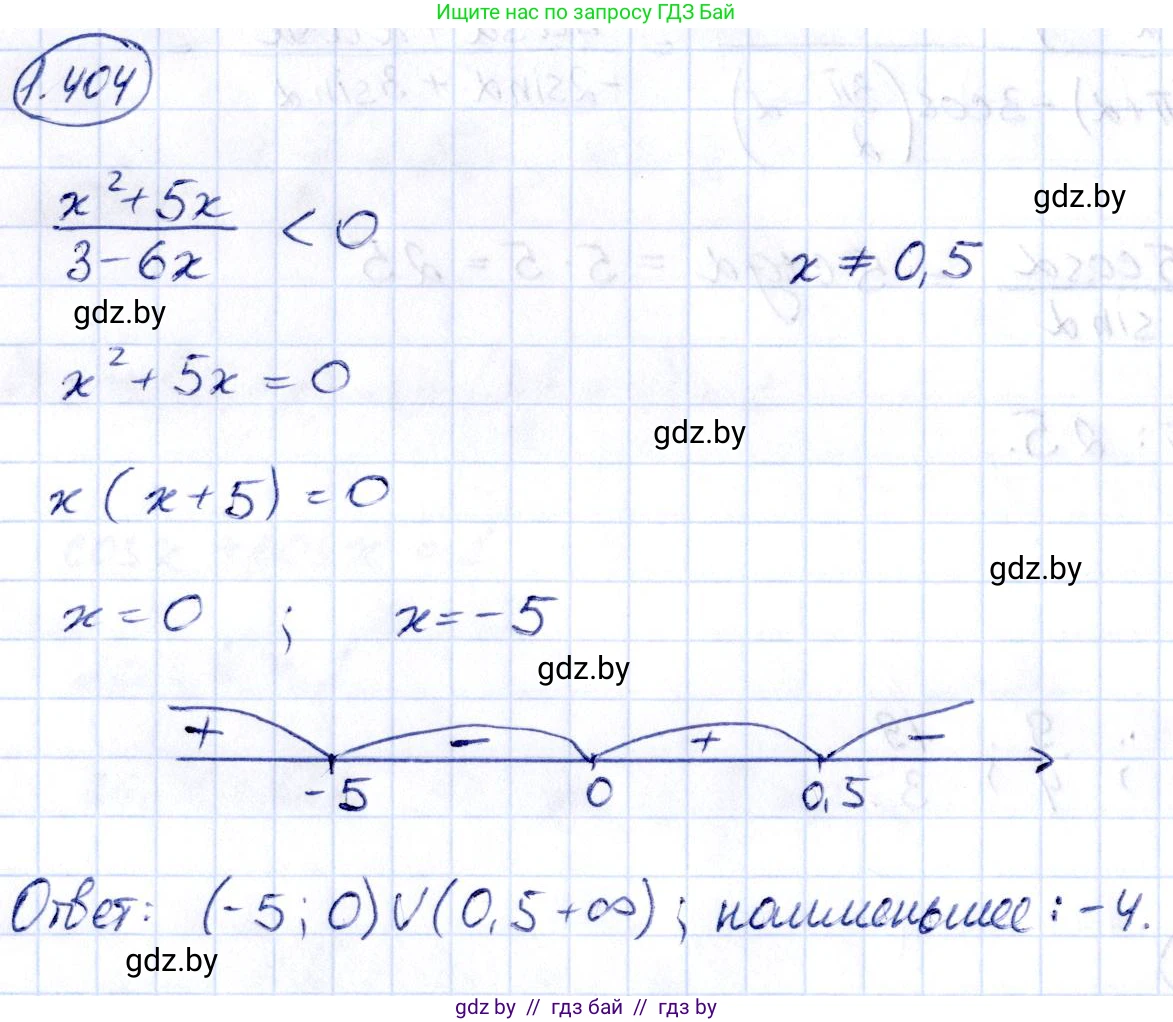 Ищите нас по запросу ГДЗ Бай
1.404
gdz.by
(x²+5x)/(3-6x) < 0
x ≠ 0,5
gdz.by
x²+5x = 0
gdz.by
x(x+5) = 0
gdz.by
x = 0 ; x = -5
gdz.by
+ - + -
-5 0 0,5
Ответ: (-5; 0) ∪ (0,5 +∞) ; наименьшее : -4.
gdz.by
gdz by // гдз бай // гдз by